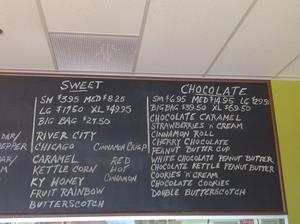 SWEET
SM $3.95 MED $8.25
LG $17.50 XL $49.95
BIG BAG $27.50
RIVER CITY
CHICAGO CINNAMON CRISP
CARAMEL RED
KETTLE CORN HOT
KY HONEY CINNAMON
FRUIT RAINBOW
BUTTERSCOTCH
CHOCOLATE
SM $6.95 MED $14.95 LG $29.95
BIG BAG $39.50 XL $69.50
CHOCOLATE CARAMEL
STRAWBERRIES 'N' CREAM
CINNAMON ROLL
CHERRY CHOCOLATE
PEANUT BUTTER CUP
WHITE CHOCOLATE PEANUT BUTTER
CHOCOLATE KETTLE PEANUT BUTTER
COOKIES 'N' CREAM
CHOCOLATE COOKIES
DOUBLE BUTTERSCOTCH